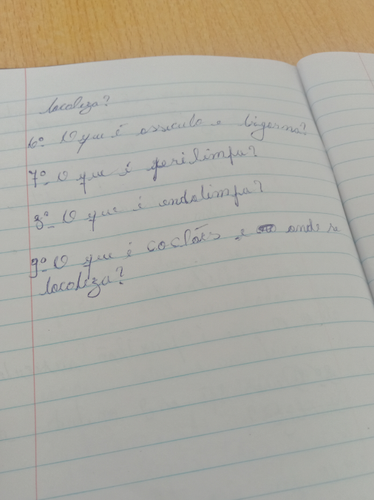 localiza?
6º O que é ossículo e bigorna?
7º O que é perilimfa?
8º O que é endolimfa?
9º O que é cocláis e onde se
localiza?